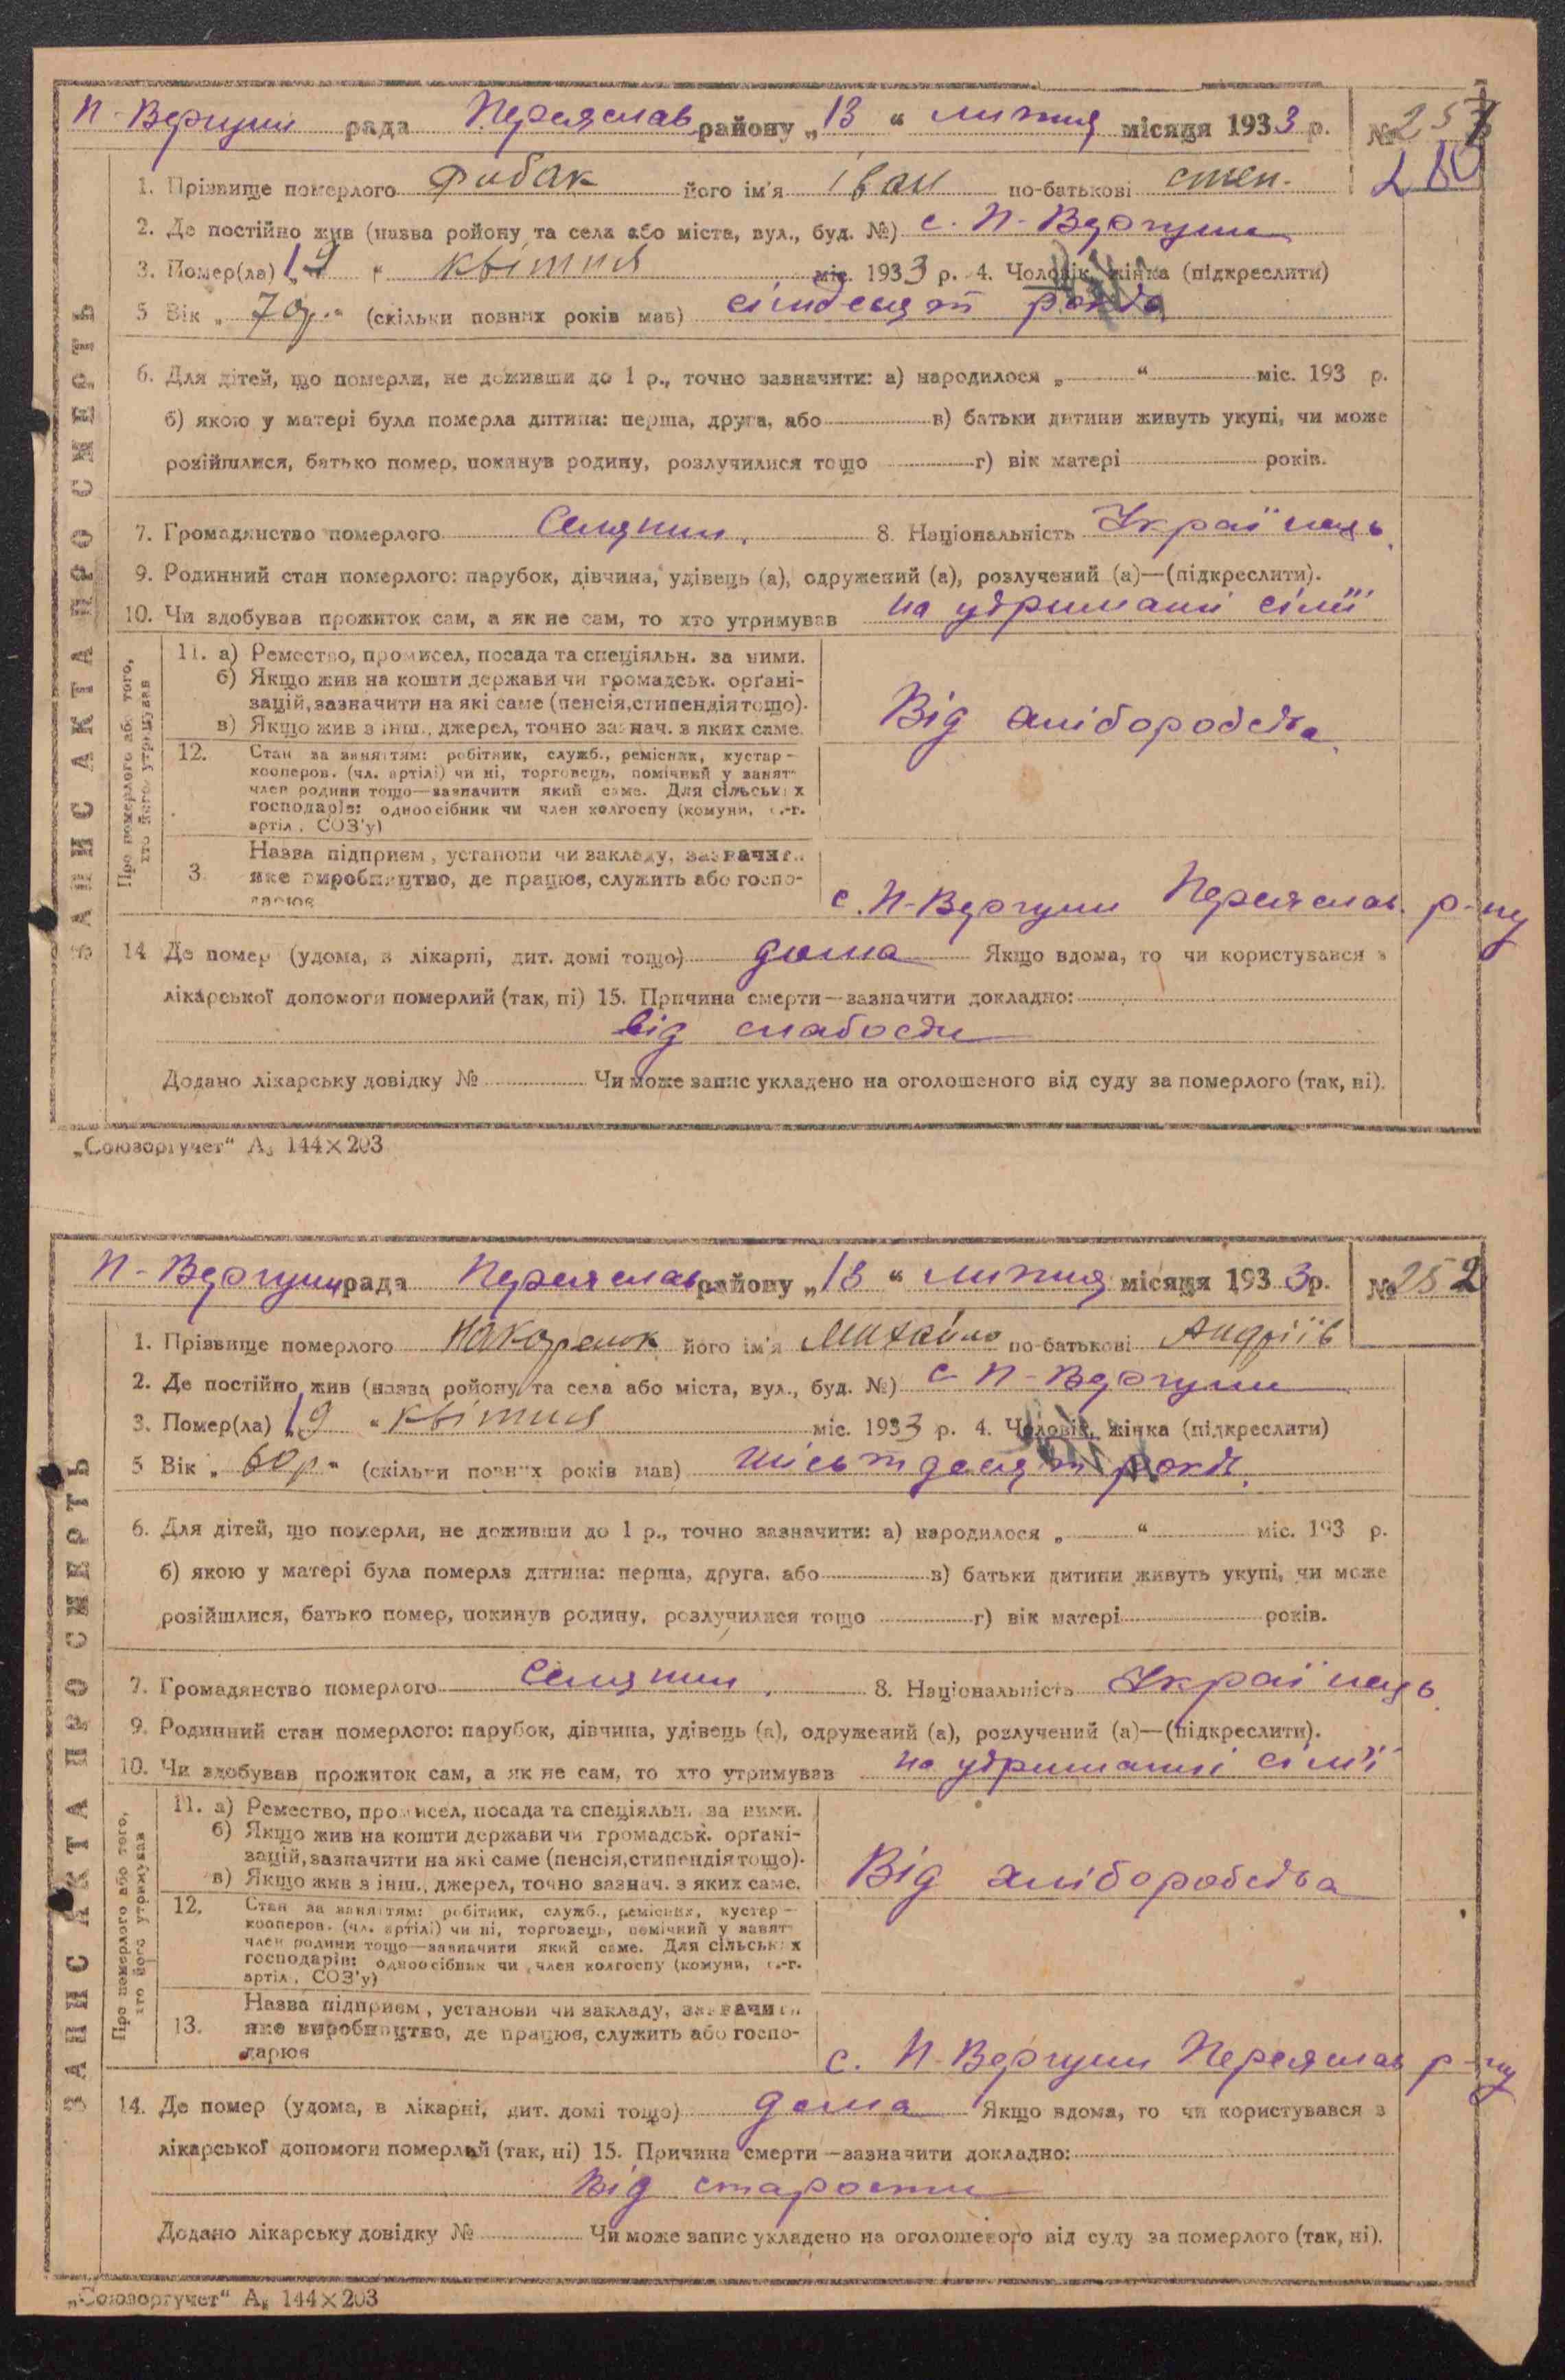 П-Вергуни рада Переяслав району „13“ липня місяця 1933 р. № 251
280
1. Прізвище померлого Рибак його ім'я Іван по-батькові степ.
2. Де постійно жив (назва ройону та села або міста, вул., буд. №) с. П-Вергуни
3. Помер(ла) „19“ квітня міс. 1933 р. 4. Чоловік, жінка (підкреслити)
5 Вік „70р.“ (скільки повних років мав) сімдесят років
6. Для дітей, що померли, не доживши до 1 р., точно зазначити: а) народилося „ “ міс. 193 р.
б) якою у матері була померла дитина: перша, друга, або в) батьки дитини живуть укупі, чи може
розійшлися, батько помер, покинув родину, розлучилися тощо г) вік матері років.
7. Громадянство померлого Селянин, 8. Національність Українець
9. Родинний стан померлого: парубок, дівчина, удівець (а), одружений (а), розлучений (а)—(підкреслити).
10. Чи здобував прожиток сам, а як не сам, то хто утримував на утриманні сімії
11. а) Ремество, промисел, посада та спеціяльн. за ними.
б) Якщо жив на кошти держави чи громадськ. орґані-
зацій, зазначити на які саме (пенсія, стипендія тощо).
в) Якщо жив з інш., джерел, точно зазнач. з яких саме.
Від хліборобства
12. Стан за заняттям: робітник, служб., ремісник, кустар—
кооперов. (чл. артілі) чи ні, торговець, помічний у занят-
член родини тощо—зазначити який саме. Для сільських
господарів: одноосібник чи член колгоспу (комуни, с.-г.
артіл, СОЗ'у)
3 Назва підприєм, установи чи закладу, зазначити
яке виробництво, де працює, служить або госпо-
дарює
с. П-Вергуни Переяслав. р-ну
Про померлого або того,
хто його утримував
ЗАПИС АКТА ПРО СМЕРТЬ
14 Де помер (удома, в лікарні, дит. домі тощо) дома Якщо вдома, то чи користувався з
лікарської допомоги померлий (так, ні) 15. Причина смерти—зазначити докладно:
від слабости
Додано лікарську довідку № Чи може запис укладено на оголошеного від суду за померлого (так, ні).
„Союзоргучет“ А₅ 144×203
П-Вергуни рада Переяслав району „13“ липня місяця 1933р. № 252
1. Прізвище померлого його ім'я Михайло по-батькові Андріїв
2. Де постійно жив (назва ройону та села або міста, вул., буд. №) с П-Вергуни
3. Помер(ла) „19“ квітня міс. 1933 р. 4. Чоловік, жінка (підкреслити)
5 Вік „60р“ (скільки повних років мав) шістдесят років.
6. Для дітей, що померли, не доживши до 1 р., точно зазначити: а) народилося „ “ міс. 193 р.
б) якою у матері була померла дитина: перша, друга, або в) батьки дитини живуть укупі, чи може
розійшлися, батько помер, покинув родину, розлучилися тощо г) вік матері років.
7. Громадянство померлого Селянин, 8. Національність Українець
9. Родинний стан померлого: парубок, дівчина, удівець (а), одружений (а), розлучений (а)—(підкреслити).
10. Чи здобував прожиток сам, а як не сам, то хто утримував на утриманні сім'ї
11. а) Ремество, промисел, посада та спеціяльн. за ними.
б) Якщо жив на кошти держави чи громадськ. орґані-
зацій, зазначити на які саме (пенсія, стипендія тощо).
в) Якщо жив з інш., джерел, точно зазнач. з яких саме.
Від хліборобства
12. Стан за заняттям: робітник, служб., ремісник, кустар—
кооперов. (чл. артілі) чи ні, торговець, помічний у занят-
член родини тощо—зазначити який саме. Для сільських
господарів: одноосібник чи член колгоспу (комуни, с.-г.
артіл, СОЗ'у)
13. Назва підприєм, установи чи закладу, зазначити
яке виробництво, де працює, служить або госпо-
дарює
с. П-Вергуни Переяслав р-ну
Про померлого або того,
хто його утримував
ЗАПИС АКТА ПРО СМЕРТЬ
14. Де помер (удома, в лікарні, дит. домі тощо) дома Якщо вдома, то чи користувався з
лікарської допомоги померлий (так, ні) 15. Причина смерти—зазначити докладно:
Від старости
Додано лікарську довідку № Чи може запис укладено на оголошеного від суду за померлого (так, ні).
„Союзоргучет“ А₅ 144×203